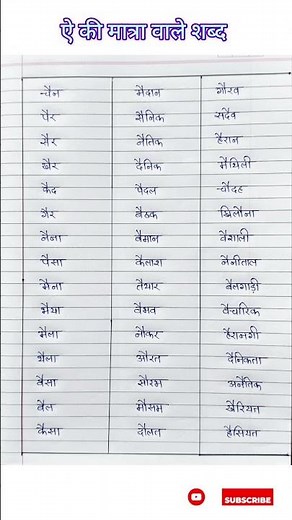 ऐ की मात्रा वाले शब्द
चैन मैदान गौरव
पैर सैनिक सदैव
सैर नैतिक हैरान
खैर दैनिक मैथिली
कैद पैदल चौदह
गैर बैठक खिलौना
नैना वैशाली
पैसा कैलाश नैनीताल
मैना तैयार बैलगाड़ी
भैया वैभव वैचारिक
मैला नौकर हैरानगी
थैला औरत दैनिकता
वैसा सौरभ अनैतिक
बैल मौसम खैरियत
कैसा दौलत हैसियत
SUBSCRIBE